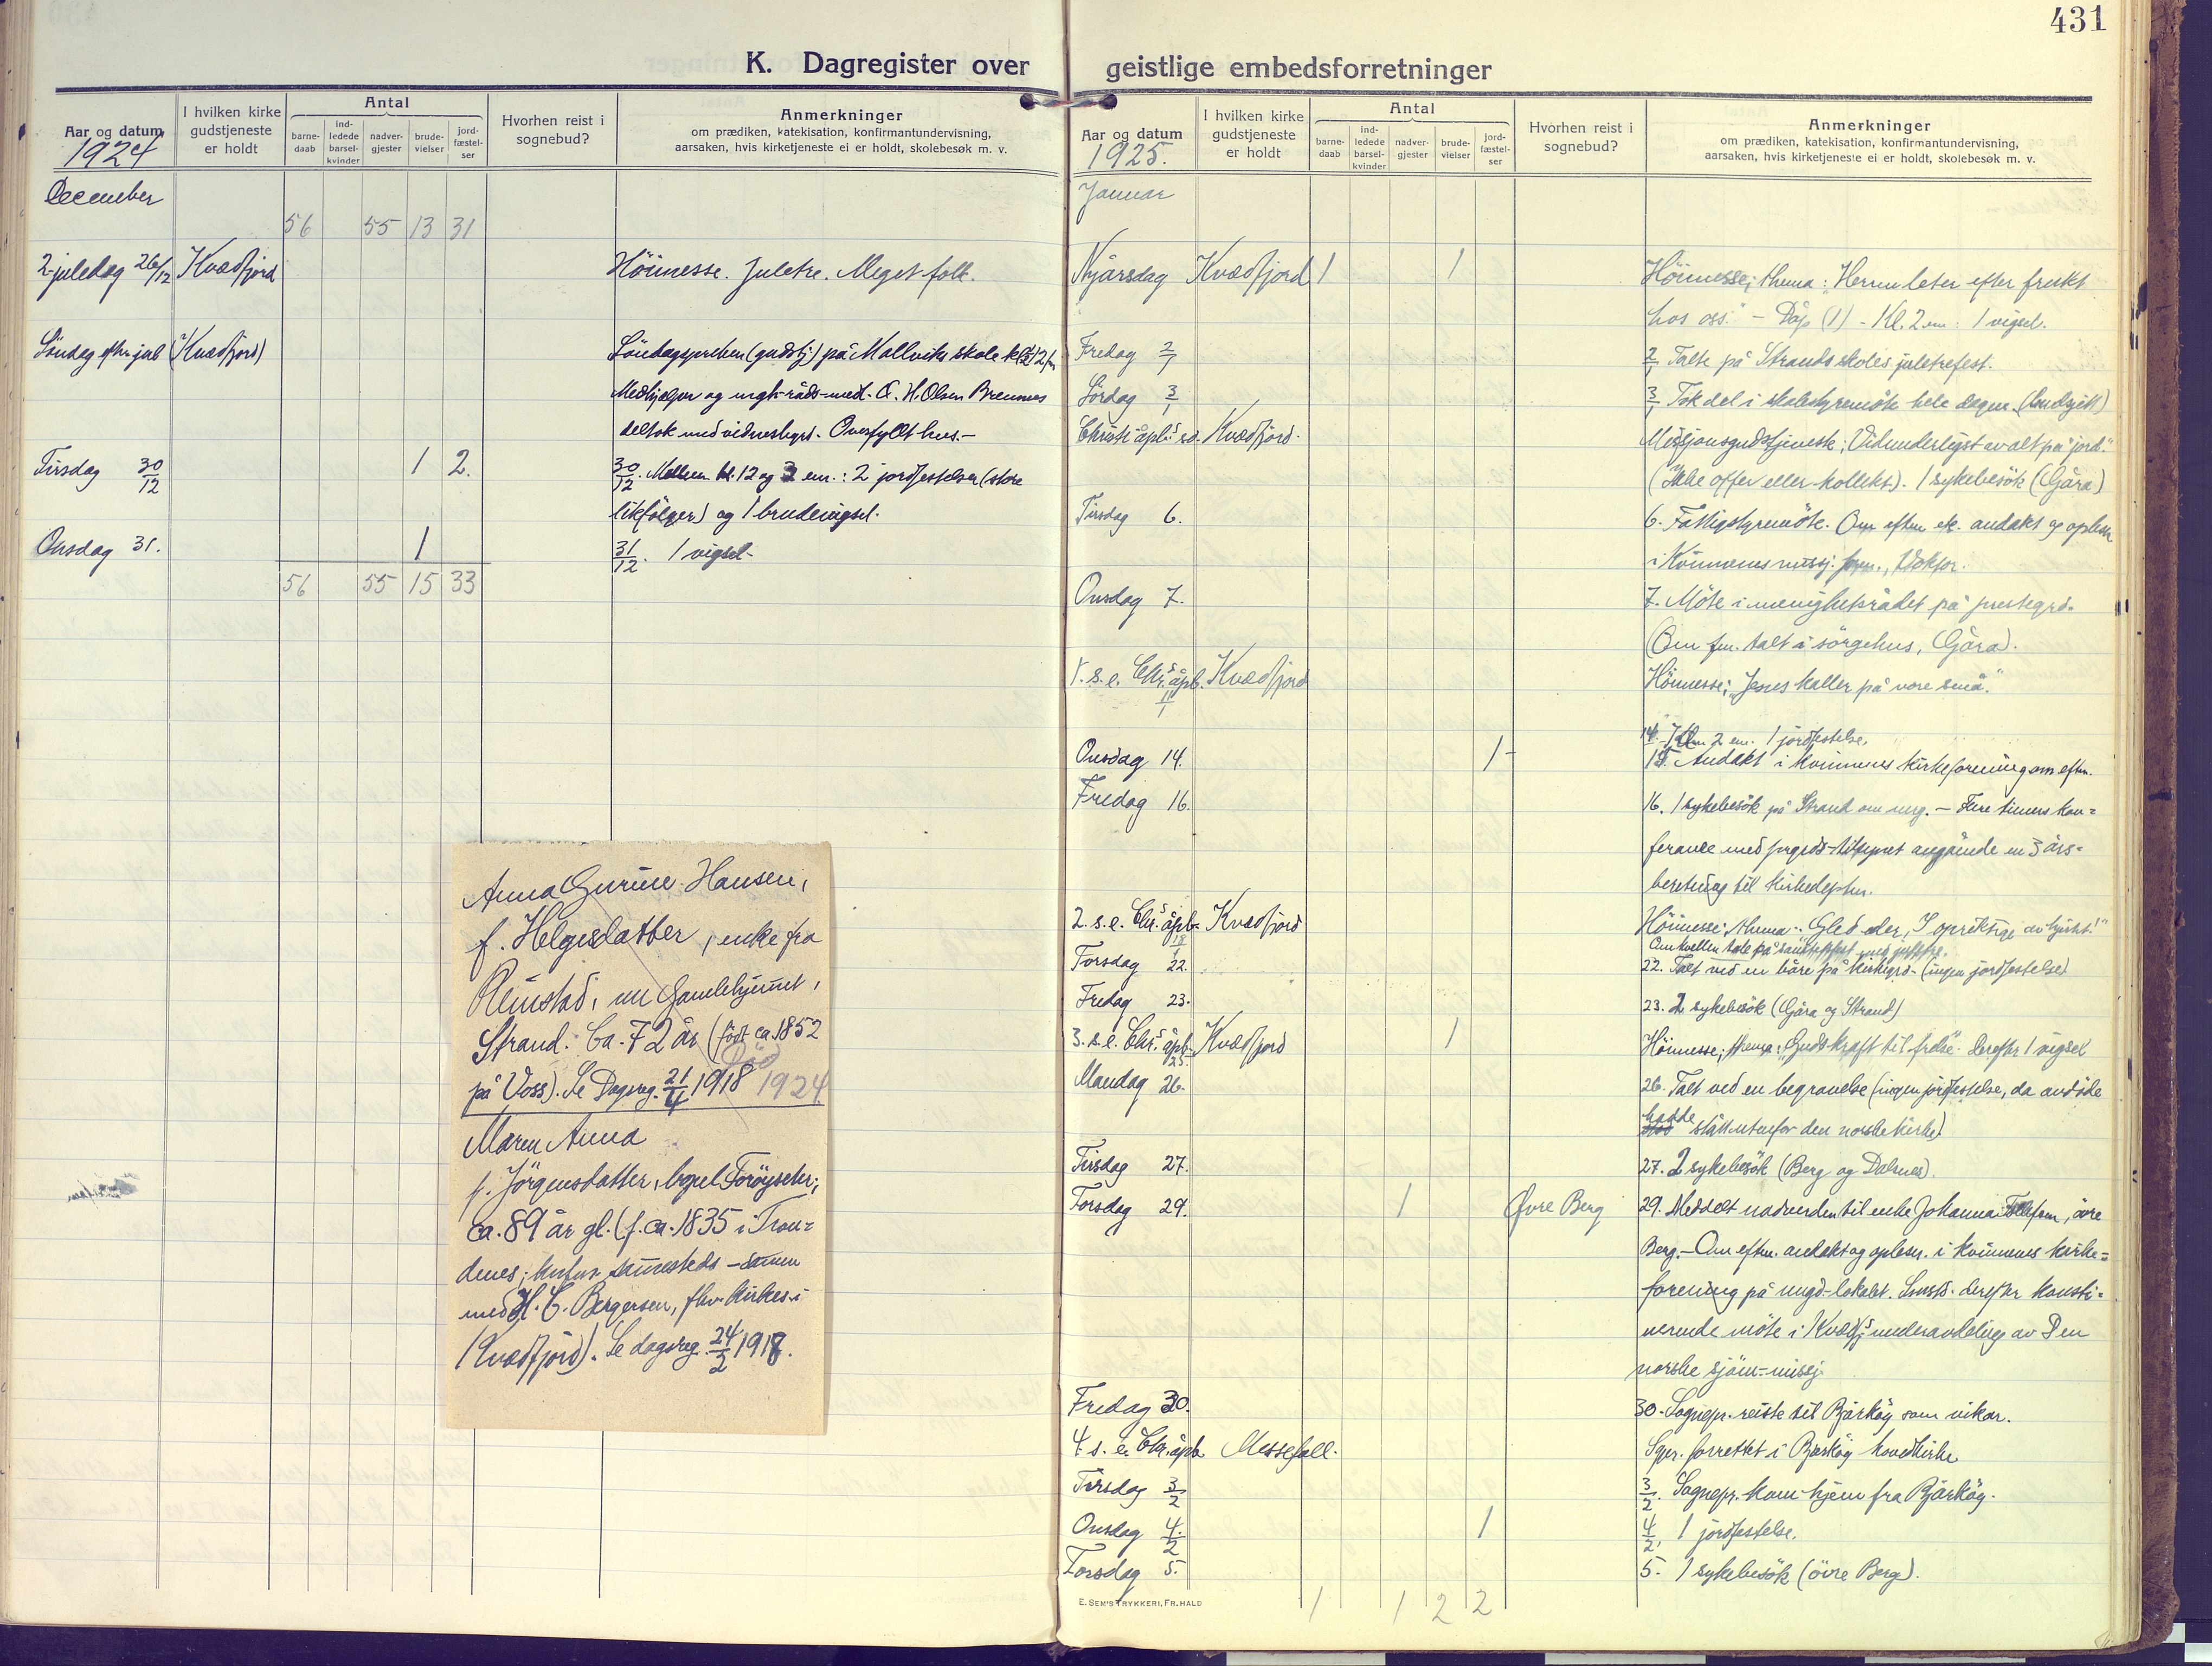 431
K. Dagregister over geistlige embedsforretninger
Aar og datum
1924
I hvilken kirke gudstjeneste er holdt
Antal
barne-daab
ind-ledede barsel-kvinder
nadver-gjester
brude-vielser
jord-fæstel-ser
Hvorhen reist i sognebud?
Anmerkninger
om prædiken, katekisation, konfirmantundervisning,
aarsaken, hvis kirketjeneste ei er holdt, skolebesøk m. v.
December
56 55 13 31
2. juledag 26/12 Kvædfjord Höimesse. Juletre. Meget folk.
Söndag efter jul (Kvædfjord) Söndagsprehen (gudstj.) på Mellvik skole kl. 12
Medhjelper og mgh.råds-med. O. H. Olsen Bremnes
deltok med vidnesbyrd. Overfyllt hus.–
Tirsdag 30/12 1 2. 30/12. Mellem kl. 12 og 3 em.: 2 jordfestelser (store
likfölger) og 1 brudevigsel.
Onsdag 31. 1 31/12. 1 vigsel–
56 55 15 33
Anna Gurine Hansen,
f. Helgesdatter, enke fra
Reinstad, nu Gamlehjemmet,
Strand. Ca. 72 år (født ca. 1852
Död
på Voss). Se Dagreg. 21/4 1918 1924
Maren Anna
f. Jörgensdatter, bopel Foröyseter,
ca. 89 år gl. (f. ca. 1835 i Tron=
denes; sammesteds – sammen
med H. C. Bergersen, fhv. kirkes. i
Kvædfjord). Se dagreg. 24/2 1918.
Aar og datum
1925.
I hvilken kirke gudstjeneste er holdt
Antal
barne-daab
ind-ledede barsel-kvinder
nadver-gjester
brude-vielser
jord-fæstel-ser
Hvorhen reist i sognebud?
Anmerkninger
om prædiken, katekisation, konfirmantundervisning,
aarsaken, hvis kirketjeneste ei er holdt, skolebesøk m. v.
Januar
Nyårsdag Kvædfjord 1 1 Höimesse; thema: "Herren leter efter frukt
hos oss." – Dåp (1) – Kl. 2 em: 1 vigsel.
Fredag 2/1 2/1 Talte på Strands skoles juletrefest.
Lördag 3/1 3/1 Tok del i skolestyremöte hele dagen. (budgjett)
Christi åpb. sd. Kvædfjord. Missjonsgudstjeneste; "Vidunderligst av alt på jord."
(Ikke offer eller kollekt). 1 sykebesök (Gåra)
Tirsdag 6. 6. Fattigstyremöte. Om eftm. andakt og oplesn.
i Kvinnenes missj. foren., Doktor.
Onsdag 7. 7. Möte i menighetsrådet på prestegrd.
(Om fm. talt i sörgehus, Gåra).
1. s. e. Chr. åpb. 11/1 Kvædfjord Höimesse; "Jesus kaller på vore små."
Onsdag 14. 1– 14. Kl. 2 em. 1 jordfestelse.
15. Andakt i kvinnenes kirkeforening om eftm.
Fredag 16. 16. 1 sykebesök på Strand om mrg. – Flere timers kon=
feranse med angående en 3 års=
beretning til kirkedeptm.
2. s. e. Chr. åpb. 18/1 Kvædfjord Höimesse; thema: "Gled eder, I opriktige av hjertet!"
Om kvellen tale på
Torsdag 22. 22. Talt ved en båre på kirkegrd. (ingen jordfestelse)
Fredag 23. 23. 2 sykebesök (Gåra og Strand)
3. s. e. Chr. åpb. 25. Kvædfjord 1 Höimesse; thema: "Guds kraft til frelse". Derefter 1 vigsel
Mandag 26. 26. Talt ved en begravelse (ingen jordfestelse, da avdöde
hadde stått utenfor den norske kirke)
Tirsdag 27. 27. 2 sykebesök (Berg og Dalsnes).
Torsdag 29. 1 Øvre Berg 29. Meddelt nadverden til enke Johanna Tellefsen, övre
Berg. – Om eftm. andakt og oplesn. i kvinnenes kirke=
forening på ungd.-lokalet. Derefter konsti=
tuerende möte i Kvædfj. underavdeling av Den
norske sjöm.-missj.
Fredag 30. 30. Sognepr. reiste til Bjarköy som vikar.
4 s. e. Chr. åpb. Messefall. Sgpr. forrettet i Bjarköy hovedkirke
Tirsdag 3/2 3/2. Sognepr. kom hjem fra Bjarköy.
Onsdag 4/2 1 4/2. 1 jordfestelse.
Torsdag 5. 5. 1 sykebesök (övre Berg).
1 1 2 2
E. SEM'S TRYKKERI, FR.HALD